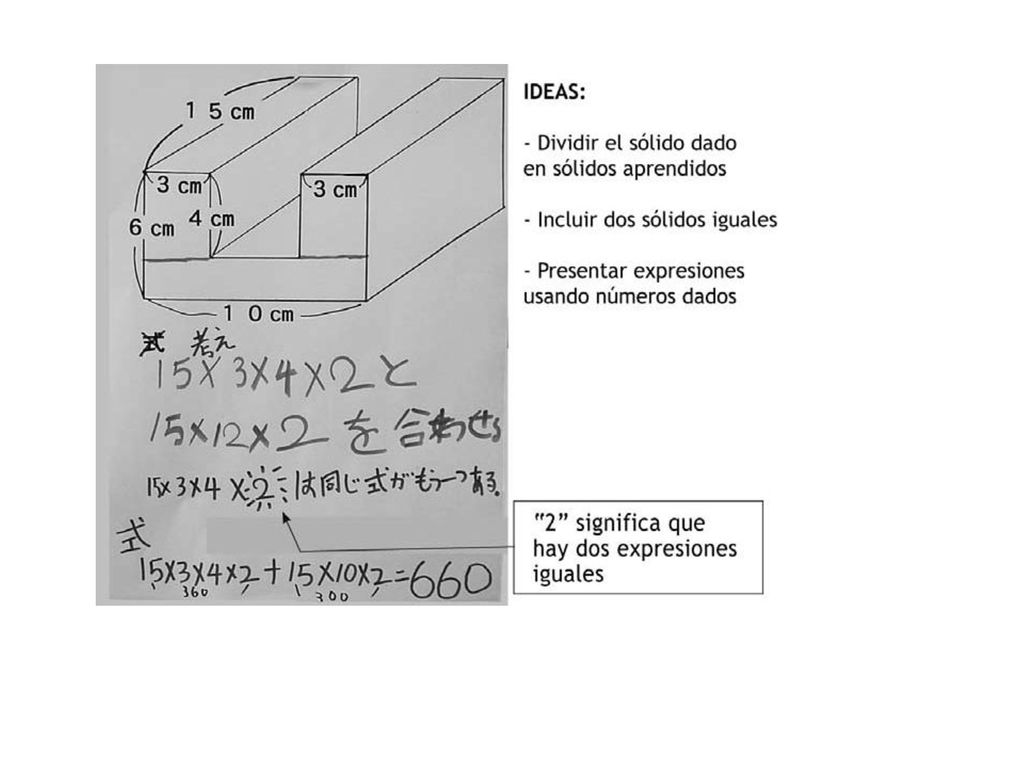 15cm
3cm
3cm
6cm
4cm
10cm
式 考え
15×3×4×2と
15×12×2を合わせる
15×3×4×2は同じ式がもう一つある。
式
15×3×4×2+15×10×2=660
360
300
IDEAS:
- Dividir el sólido dado
en sólidos aprendidos
- Incluir dos sólidos iguales
- Presentar expresiones
usando números dados
“2” significa que
hay dos expresiones
iguales